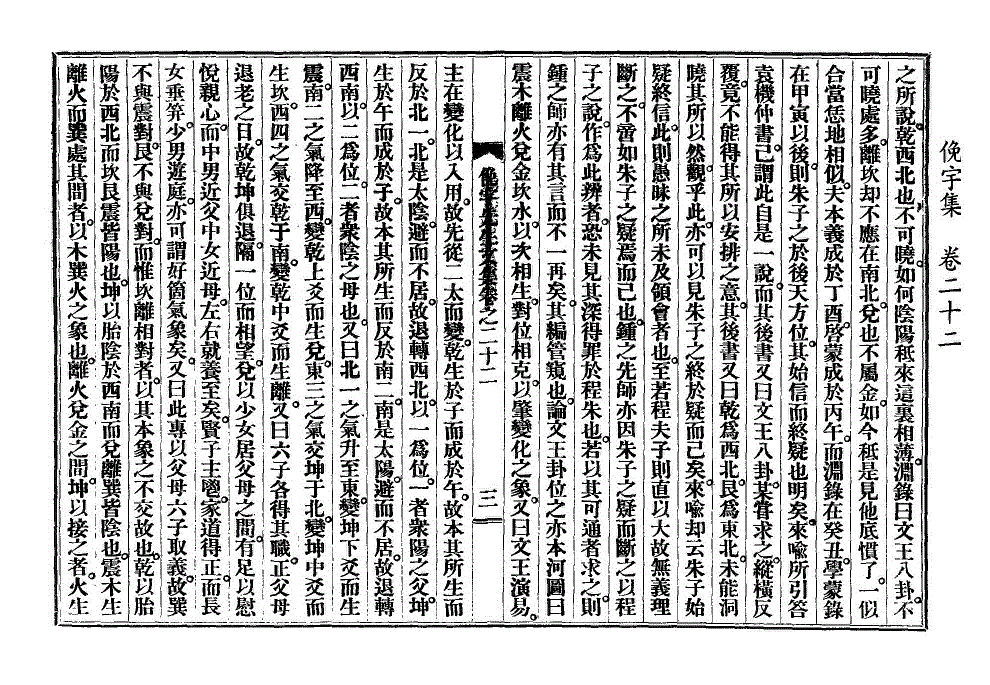 俛字集　卷二十二
之所說乾西北也不可曉如何陰陽秪來這裏相薄淵錄曰文王八卦不
可曉處多離坎却不應在南北兌也不屬金如今秪是見他底慣了一似
合當恁地相似夫本義成於丁酉啓蒙成於丙午而淵錄在癸丑學蒙錄
在甲寅以後則朱子之於後天方位其始信而終疑也明矣來喩所引答
袁機仲書己謂此自是一說而其後書又曰文王八卦某嘗求之縱橫反
覆竟不能得其所以安排之意其後書又曰乾爲西北艮爲東北未能洞
曉其所以然觀乎此亦可以見朱子之終於疑而己矣來喩却云朱子始
疑終信此則愚昧之所未及領會者也至若程夫子則直以大故無義理
斷之不啻如朱子之疑焉而己也鍾之先師亦因朱子之疑而斷之以程
子之說作爲此辨者恐未見其深得罪於程朱也若以其可通者求之則
鍾之師亦有其言而不一再矣其編管窺也論文王卦位之亦本河圖曰
震木離火兌金坎水以次相生對位相克以肇變化之象又曰文王演易
之二十二　三
主在變化以入用故先從二太而變乾生於子而成於午故本其所生而
反於北一北是太陰避而不居故退轉西北以一爲位一者衆陽之父坤
生於午而成於子故本其所生而反於南二南是太陽避而不居故退轉
西南以二爲位二者衆陰之母也又曰北一之氣升至東變坤下爻而生
震南二之氣降至西變乾上爻而生兌東三之氣交坤于北變坤中爻而
生坎西四之氣交乾于南變乾中爻而生離又曰六子各得其職正父母
退老之日故乾坤俱退隔一位而相望兌以少女居父母之間有足以慰
悅親心而中男近父中女近母左右就養至矣賢子主鬯家道得正而長
女垂笄少男遊庭亦可謂好箇氣象矣又曰此專以父母六子取義故巽
不與震對艮不與兌對而惟坎離相對者以其本象之不交故也乾以胎
陽於西北而坎艮震皆陽也坤以胎陰於西南而兌離巽皆陰也震木生
離火而巽處其間者以木巽火之象也離火兌金之間坤以接之者火生